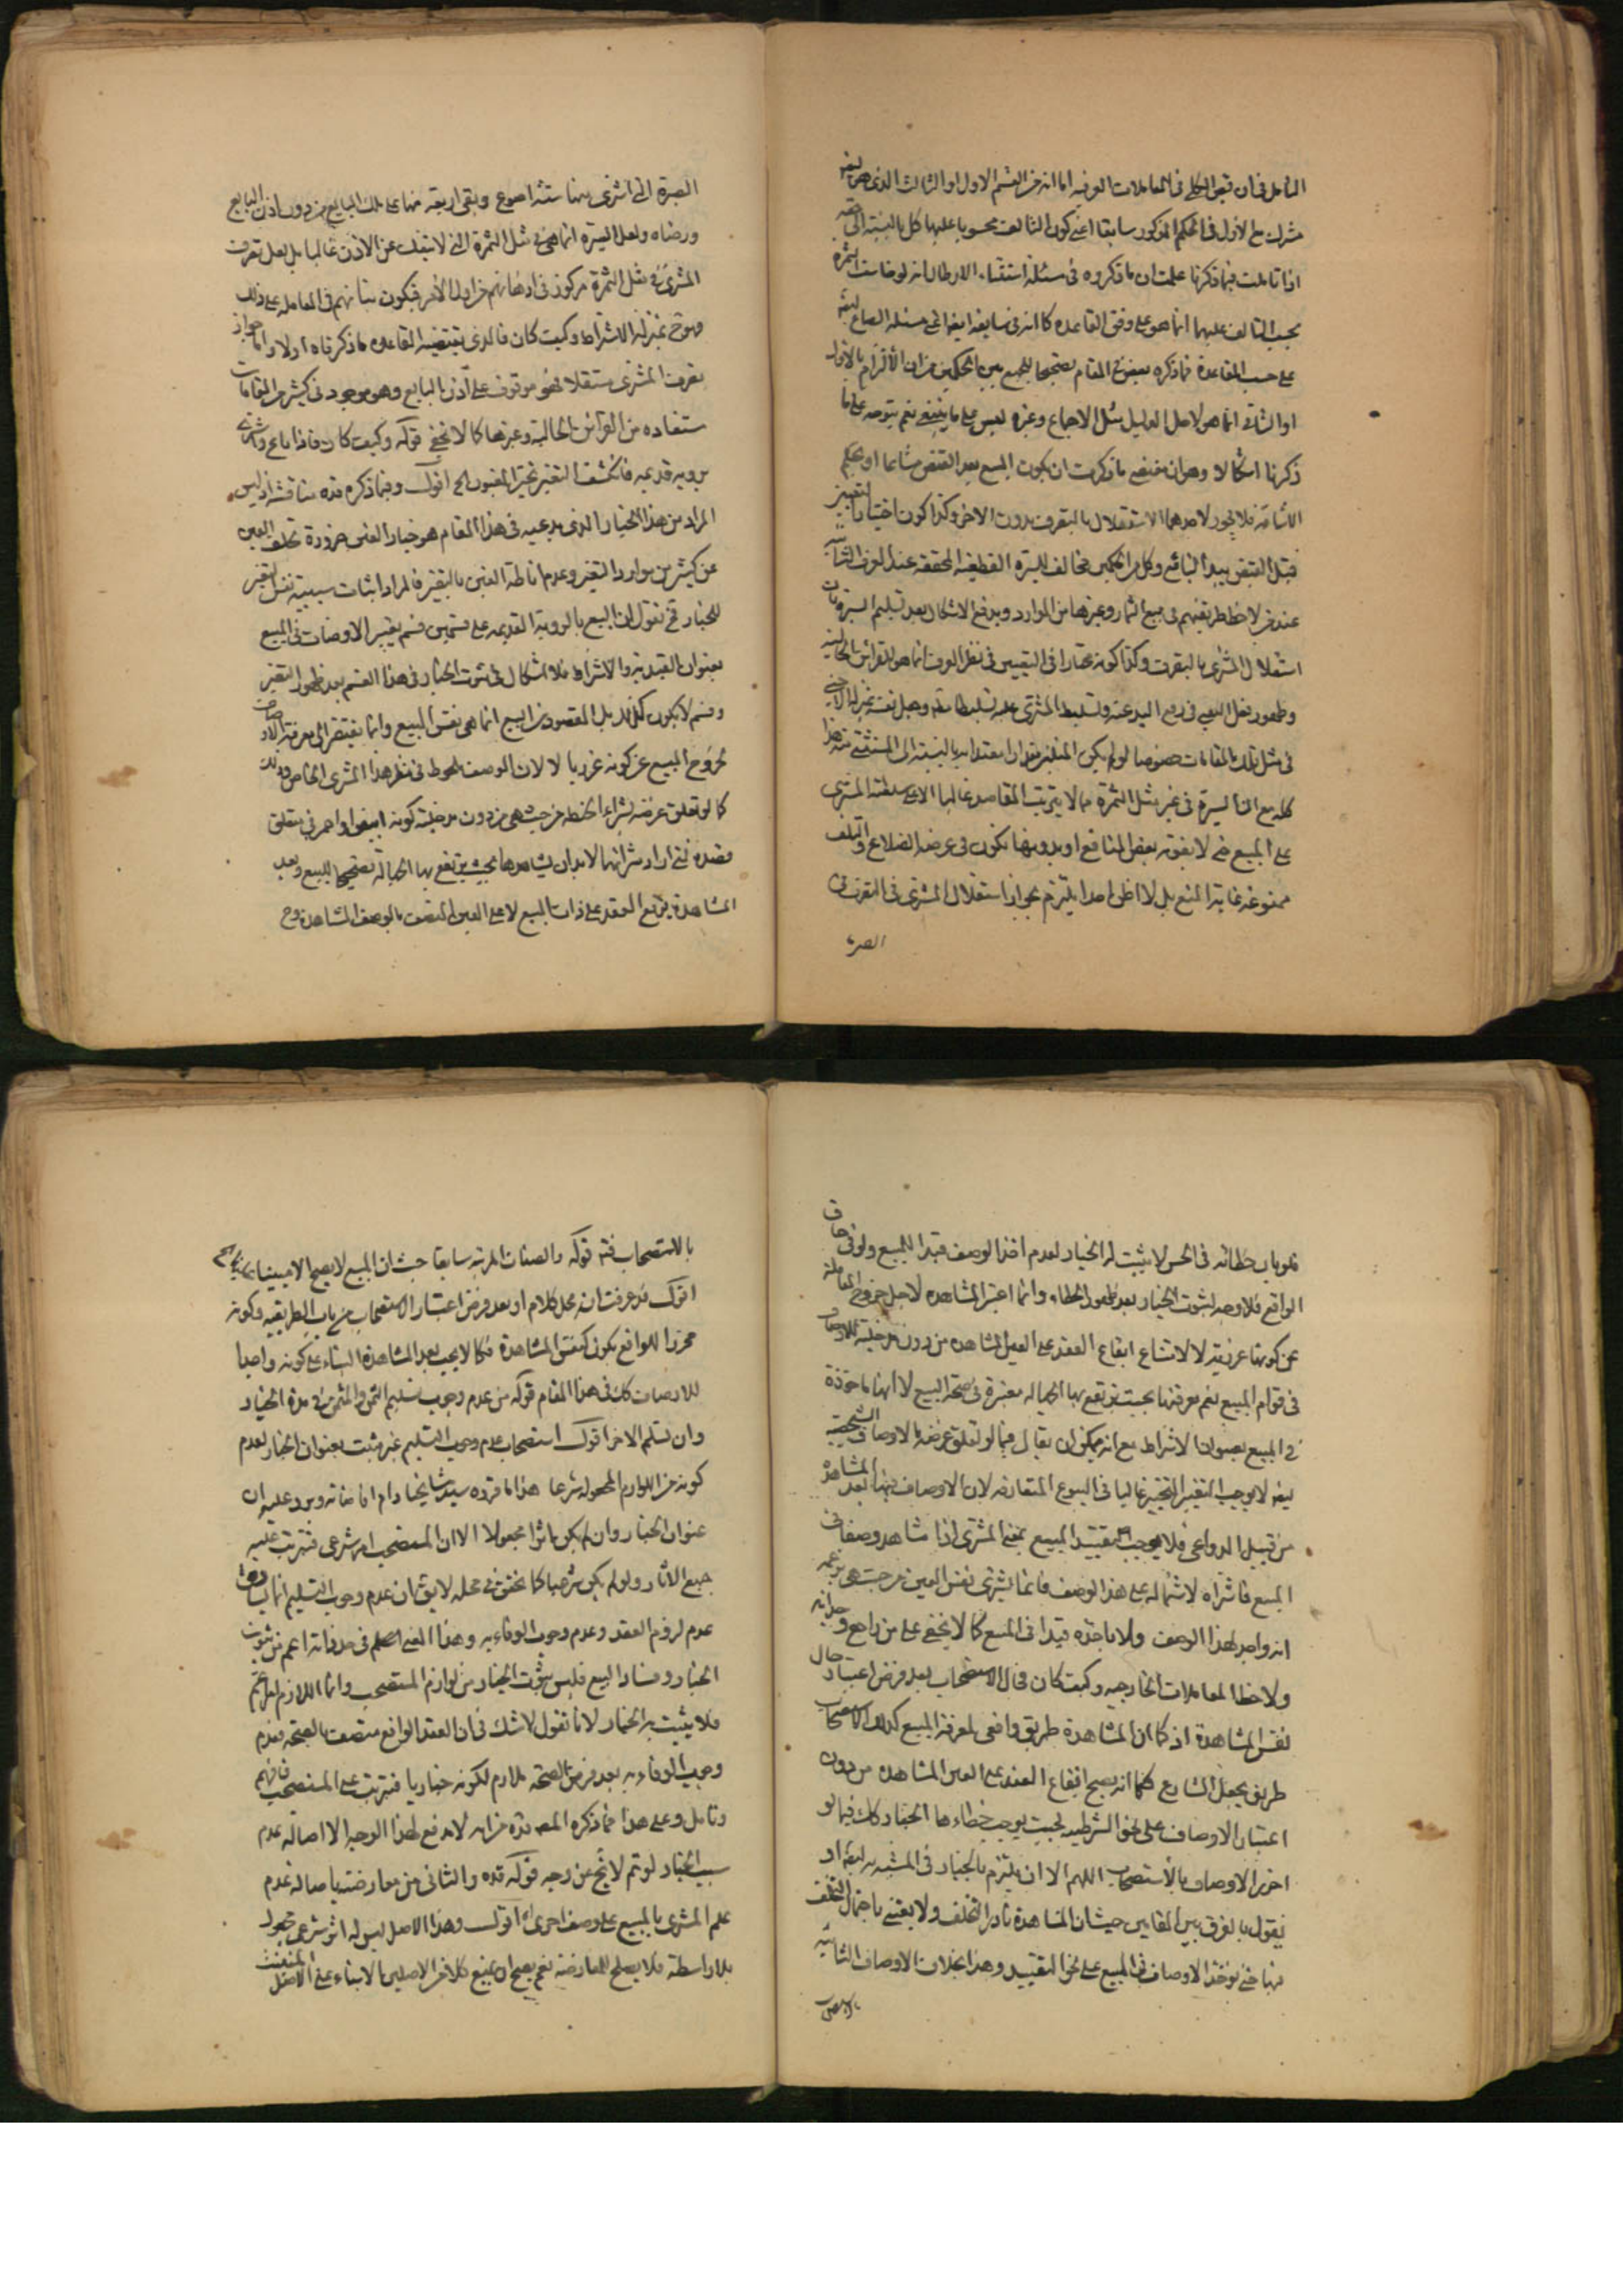 التأمل فى ان قبض الكلى فى المعاملات العرفية اما انه من القسم الاول او الثالث الذى هو ايضا
مشترك مع الاول فى الحكم المذكور سابقا اعنى كون التالف محسوبا عليهما كل بالنسبة الى حقه
اذا تاملت فيما ذكرنا علمت ان ما ذكروه فى مسئلة استثناء الارطال انه لو خاست الثمرة
يحسب التالف عليهما انما هو على وفق القاعدة كما انه فى سابقه ايضا اعنى مسئلة الصاع
على حسب القاعدة فما ذكره بعض فى المقام تصحيحا للجمع بين الحكمين من ان الالتزام بالاول
او الثانى انما هو لاجل الدليل مثل الاجماع وغيره ليس على ما ينبغى نعم يتوجه على ما
ذكرنا اشكال وهو ان مقتضى ما ذكرت ان يكون المبيع بعد القبض مشاعا او بحكم
الاشاعة فلا يجوز لاحدهما الاستقلال بالتصرف بدون الاخر وكذا كون اختيار التعيين
قبل القبض بيد البائع وكل من الحكمين مخالف للسيرة القطعية المحققة عند العرف الثابتة
عند من لاحظ طريقتهم فى بيع الثمار وغيرها من الموارد ويدفع الاشكال بعد تسليم السيرة بان
استقلال المشترى بالتصرف وكذا كونه مختارا فى التعيين فى نظر العرف انما هو للقرائن الحالية
وظهور نفل البيع فى رفع اليد عنه وتسليط المشترى عليه تسليطا تاما وجعل نفسه بمنزلة الاجنبى
فى مثل تلك المقامات خصوصا لو لم يكن المتلف مقدارا معتدا به بالنسبة الى المستثنى منه هذا
كله مع ان السيرة فى غير مثل الثمرة مما لا يترتب المقاصد غالبا الا على سلطنة المشترى
على المبيع حتى لا يفوته بعض المنافع او بدونها تكون فى عرضة الضياع والتلف
ممنوعة غاية المنع بل لا اظن احدا يلتزم بجواز استقلال المشترى فى التصرف فى
الصبرة
الصبرة التى اشترى منها ستة اصوع وبقى اربعة منها على ملك البايع من دون اذن البايع
ورضاه ولعل السيرة انما هى فى مثل الثمرة التى لا تنفك عن الاذن غالبا بل لعل تصرف
المشترى فى مثل الثمرة مركوز فى اذهانهم من اول الامر فيكون بنائهم فى المعاملة على ذلك
وهو ح بمنزلة الاشتراط وكيف كان فالذى يقتضيه القاعدة ما ذكرناه اولا واما جواز
تصرف المشترى مستقلا فهو موقوف على اذن البايع وهو موجود فى كثير من المقامات
ستفاده من القرائن الحالية وغيرها كما لا يخفى قوله وكيف كان فاذا باع واشترى
برؤية قديمة فانكشف التغير تخير المغبون الخ اقول وفيما ذكره قده مناقشة اذ ليس
المراد من هذا الخيار الذى يدعيه فى هذا المقام هو خيار الغبن ضرورة تخلف الغبن
عن كثير من موارد التغير وعدم اناطة الغبن بالتغير فالمراد اثبات سببية نفس التغير
للخيار فح نقول ان البيع بالرؤية القديمة على قسمين قسم يعتبر الاوصاف فى المبيع
بعنوان القيدية والاشتراط فلا اشكال فى ثبوت الخيار فى هذا القسم بعد ظهور التغير
وقسم لا يكون كذلك بل المقصود من البيع انما هى نفس المبيع وانما يفتقر الى معرفة الاوصاف
لخروج المبيع عن كونه غرريا لا لان الوصف ملحوظ فى نظر هذا المشترى الخاص وذلك
كما لو تعلق غرضه بشراء الحنطة من حيث هى من دون مدخلية كونه ابيض او احمر فى متعلق
قصده فمتى اراد شرائها لا بد ان يشاهدها بحيث يرتفع بها الجهالة تصحيحا للبيع وبعد
المشاهدة يوقع العقد على ذات المبيع لا على العين المتصف بالوصف المشاهدة وح
فلو بان خطائه فى الحس لا يثبت له الخيار لعدم اخذ الوصف قيدا للمبيع ولو فى حاق
الواقع فلا وجه لثبوت الخيار بعد ظهور الخطاء وانما اعتبر المشاهدة لاجل خروج المعاملة
عن كونها غررية لا لامتناع ايقاع العقد على العين المشاهدة من دون مدخلية للاوصاف
فى قوام المبيع نعم معرفتها بحيث يرتفع بها الجهالة معتبرة فى صحة البيع لا انها ماخوذة
فى المبيع بعنوان الاشتراط مع انه يمكن ان يقال فيما لو تعلق غرضه بالاوصاف الشخصية
ايضا لا يوجب التغير التخيير غالبا فى البيوع المتعارفة لان الاوصاف فيها بعد المشاهدة
من قبيل الدواعى فلا يوجب تقييد المبيع بمعنى المشترى اذا شاهد وصفا فى
المبيع فاشتراه لاشتماله على هذا الوصف فانما يشترى نفس العين من حيث هى بزعم
انه واجد لهذا الوصف ولا ياخذه قيدا فى المبيع كما لا يخفى على من راجع وجدانه
ولاحظ المعاملات الخارجية وكيف كان فحال الاستصحاب بعد فرض اعتباره حال
نفس المشاهدة اذ كما ان المشاهدة طريق واقعى لمعرفة المبيع كذلك الاستصحاب
طريق بجعل الشارع فكما انه يصح ايقاع العقد على العين المشاهدة من دون
اعتبار الاوصاف على نحو الشرطية بحيث يوجب خطاءها الخيار كك فيما لو
احرز الاوصاف بالاستصحاب اللهم الا ان يلتزم بالخيار فى المشبه به ايضا او
يقول بالفرق بين المقامين حيث ان المشاهدة نادر التخلف ولا يعتنى باحتمال التخلف
فيها حتى يؤخذ الاوصاف فى المبيع على نحو التقييد وهذا بخلاف الاوصاف الثابتة
بالاستصحاب
بالاستصحاب فتم قوله والصفات المرئية سابقا حيث ان المبيع لا يصح الا مبنيا عليها الخ
اقول قد عرفت انه محل كلام او بعد فرض اعتبار الاستصحاب من باب الطريقية وكونه
محرزا للواقع يكون كنفس المشاهدة فكما لا يجب بعد المشاهدة البناء على كونه واجدا
للاوصاف كك فى هذا المقام قوله من عدم وجوب تسليم الثمن والمثمن فى مدة الخيار
وان تسلم الاخر اقول استصحاب عدم وجوب التسليم غير مثبت بعنوان الخيار لعدم
كونه من اللوازم المجعولة شرعا هذا ما قرره سيد مشايخنا دام افاضاته ويرد عليه ان
عنوان الخيار وان لم يكن اثرا مجعولا الا ان المستصحب امر شرعى فيترتب عليه
جميع الاثار ولو لم يكن شرعيا كما تحقق فى محله لا يق ان عدم وجوب التسليم انما يساوق
عدم لزوم العقد وعدم وجوب الوفاء به وهذا المعنى اعلم فى حد ذاته اعم من ثبوت
الخيار وفساد البيع فليس ثبوت الخيار من لوازم المستصحب وانما اللازم امر اعم
فلا يثبت به الخيار لانا نقول لا شك فى ان العقد الواقع متصف بالصحة فعدم
وجوب الوفاء به بعد فرض الصحة ملازم لكونه خياريا فيترتب على المستصحب فافهم
وتامل وعلى هذا فما ذكره المص قده من انه لا مدفع لهذا الوجه الا اصالة عدم
سبب الخيار لو تم لا يخ عن وجه قوله قده والثانى من معارضته باصالة عدم
علم المشترى بالمبيع على وصف اخر اه اقول وهذا الاصل ليس له اثر شرعى مجعول
بلا واسطة فلا يصلح للمعارضة نعم يصح ان يمنع كلا من الاصلين الا بناء على الاصل المثبت